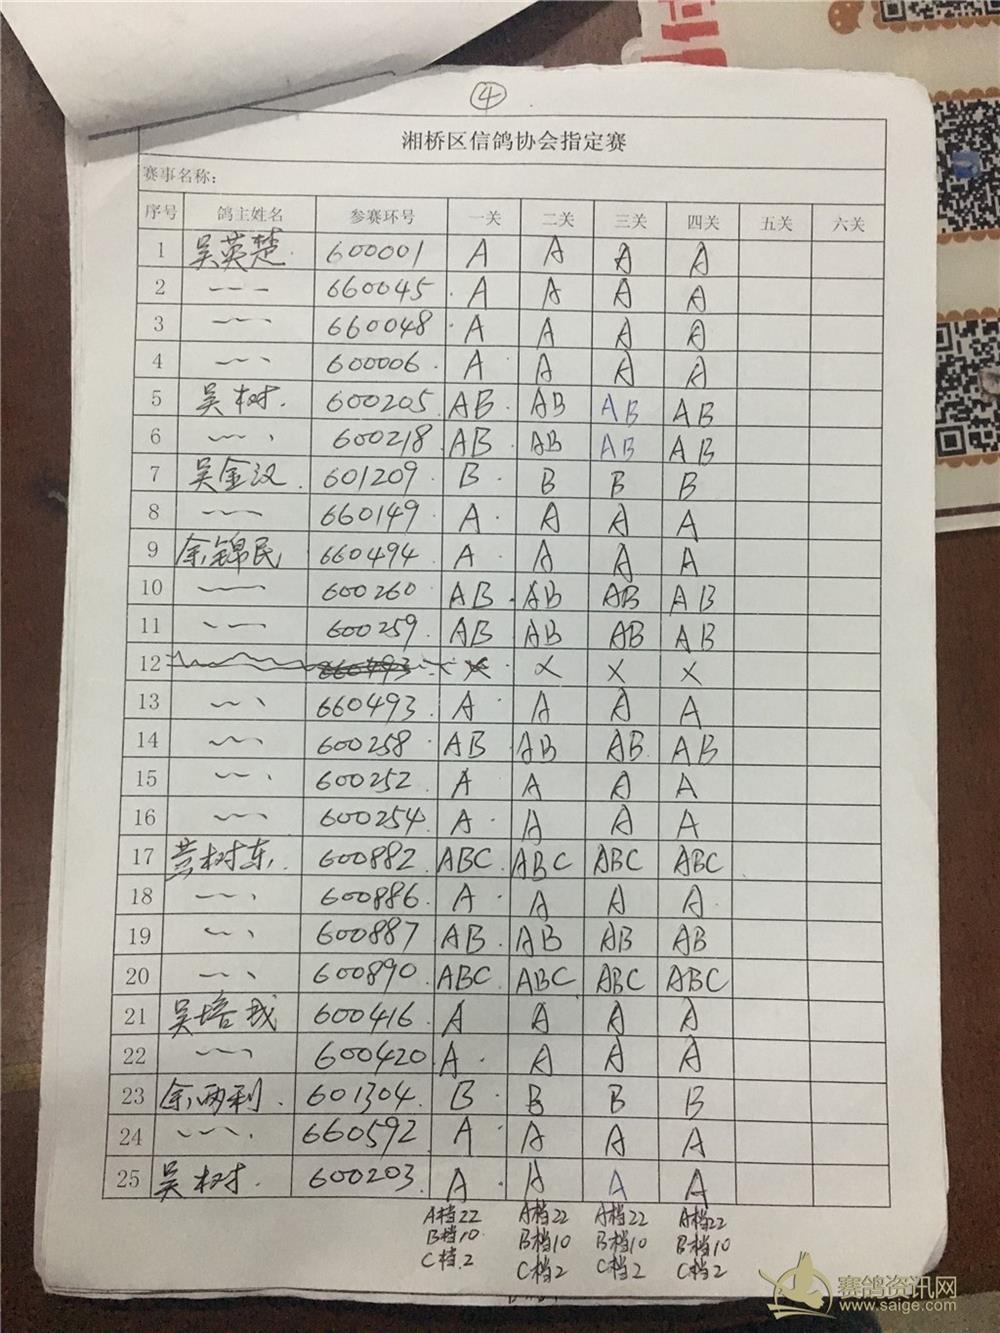 ④
湘桥区信鸽协会指定赛
赛事名称:
序号 鸽主姓名 参赛环号 一关 二关 三关 四关 五关 六关
1 吴英楚 600001 A A A A
2 660045 A A A A
3 660048 A A A A
4 600006 A A A A
5 吴树 600205 AB AB AB AB
6 600218 AB AB AB AB
7 吴金汉 601209 B B B B
8 660149 A A A A
9 余锦民 660494 A A A A
10 600260 AB AB AB AB
11 600259 AB AB AB AB
12 660493 × × × ×
13 660493 A A A A
14 600258 AB AB AB AB
15 600252 A A A A
16 600254 A A A A
17 黄树东 600882 ABC ABC ABC ABC
18 600886 A A A A
19 600887 AB AB AB AB
20 600890 ABC ABC ABC ABC
21 吴培我 600416 A A A A
22 600420 A A A A
23 余两利 601304 B B B B
24 660592 A A A A
25 吴树 600203 A A A A
A档22 A档22 A档22 A档22
B档10 B档10 B档10 B档10
C档2 C档2 C档2 C档2
赛鸽资讯网
www.saige.com